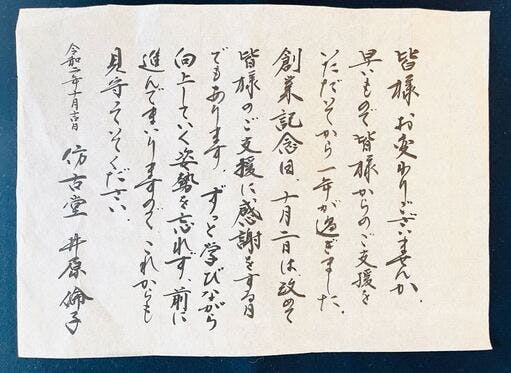 皆様 お変わりございませんか。
早いもので皆様からのご支援を
いただいてから一年が過ぎました。
創業記念日、十月二日は改めて
皆様のご支援に感謝をする日
でもあります。ずっと学びながら
向上していく姿勢を忘れず、前に
進んでまいりますので これからも
見守っていてください。
令和二年十月吉日
仿古堂 井原倫子